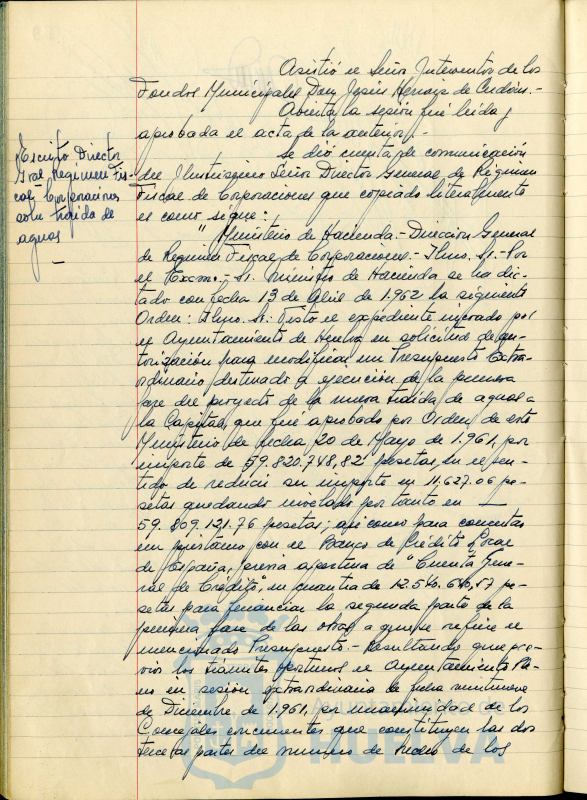 Asistió el Señor Interventor de los
Fondos Municipales Don Jesús de Cerdán.-
Abierta la sesión fué leída y
aprobada el acta de la anterior.-
Escrito Director
Gral Regimen Fis-
cal Corporaciones
sobre traida de
aguas
Se dió cuenta de comunicación
del Ilustrísimo Señor Director General de Régimen
Fiscal de Corporaciones que copiado literalmente
es como sigue:
"Ministerio de Hacienda.- Dirección General
de Regimen Fiscal de Corporaciones.- Iltmo. Sr.- Por
el Excmo.- Sr. Ministro de Hacienda se ha dic-
tado con fecha 13 de Abril de 1.962 la siguiente
Orden: Iltmo. Sr.: Visto el expediente incoado por
el Ayuntamiento de Huelva en solicitud de au-
torización para modificar un Presupuesto Extra-
ordinario destinado a ejecución de la primera
fase del proyecto de la nueva traida de aguas a
la Capital, que fué aprobado por Orden de este
Ministerio de fecha 20 de Mayo de 1.961, por
importe de 59.820.748,82 pesetas, en el sen-
tido de reducir su importe en 11.627.06 pe-
setas quedando por tanto en
59.809.121.76 pesetas; asi como para concertar
un préstamo con el Banco de Crédito Local
de España, previa apertura de "Cuenta Gene-
ral de Crédito", en cuantía de pe-
setas para financiar la segunda parte de la
primera fase de las obras a que se refiere el
mencionado Presupuesto.- Resultando que pre-
vios los trámites oportunos el Ayuntamiento Ple-
no en sesión extraordinaria de fecha veintinueve
de Diciembre de 1.961, por unanimidad de los
Concejales concurrentes que constituyen las dos
terceras partes del número de hecho de los
Ayuntamiento de
HUELVA